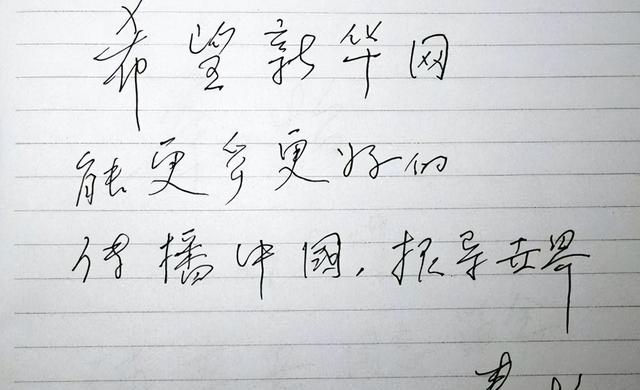 希望新华网
能更多更好的
传播中國，报导世界